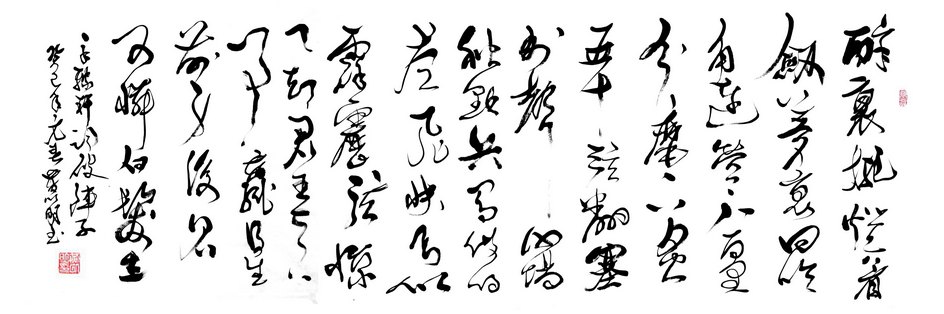 醉裏挑燈看
劍夢裏回吹
角連營八百里
分麾下炙
五十弦翻塞
外聲沙場
秋點兵馬作的
盧飛快弓如
霹靂弦驚
了却君王天下
事贏得生
前身後名
可憐白髮生
辛棄疾詞破陣子
癸巳年春明書